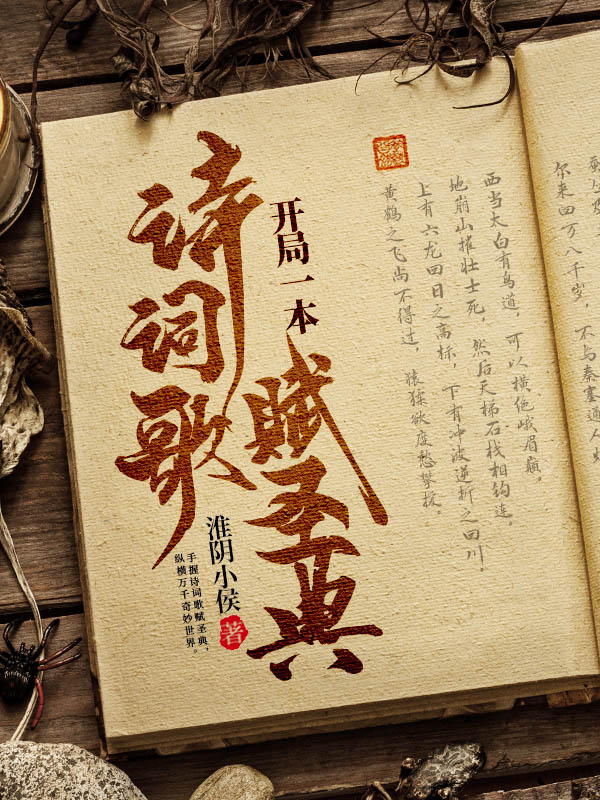 开局一本
诗词歌
賦圣典
淮阴小侯
著
手握诗词歌赋圣典，
纵横万千奇妙世界。
尔来四万八千岁，不与秦塞通人
西当太白有鸟道，可以横绝峨眉巅。
地崩山摧壮士死，然后天梯石栈相钩连。
上有六龙回日之高标，下有冲波逆折之回川。
黄鹤之飞尚不得过，猿猱欲度愁攀援。